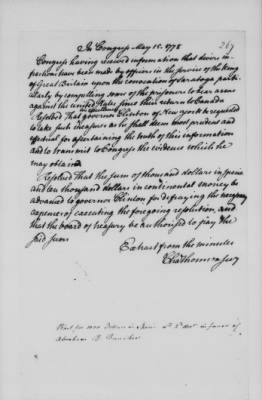 267
In Congress May 15. 1778
Congress having received information that divers in-
fractions have been made by officers in the service of the king
of Great Britain upon the convocation of Saratoga parti-
cularly by compelling some of the prisoners to bear arms
against the united States since their return to Canada
Resolved That governor Clinton of New york be requested
to take such measures as he shall deem most prudent and
effectual for ascertaining the truth of this information
and to transmit to Congress the evidence which he
may obtain
Resolved That the sum of thousand dollars in specie
and ten thousand dollars in continental money be
advanced to governor Clinton for defraying the
expences of executing the foregoing resolution, and
that the board of treasury be authorised to pay the
said sum
Extract from the minutes
Cha Thomson secy
in favor of
Abraham B.